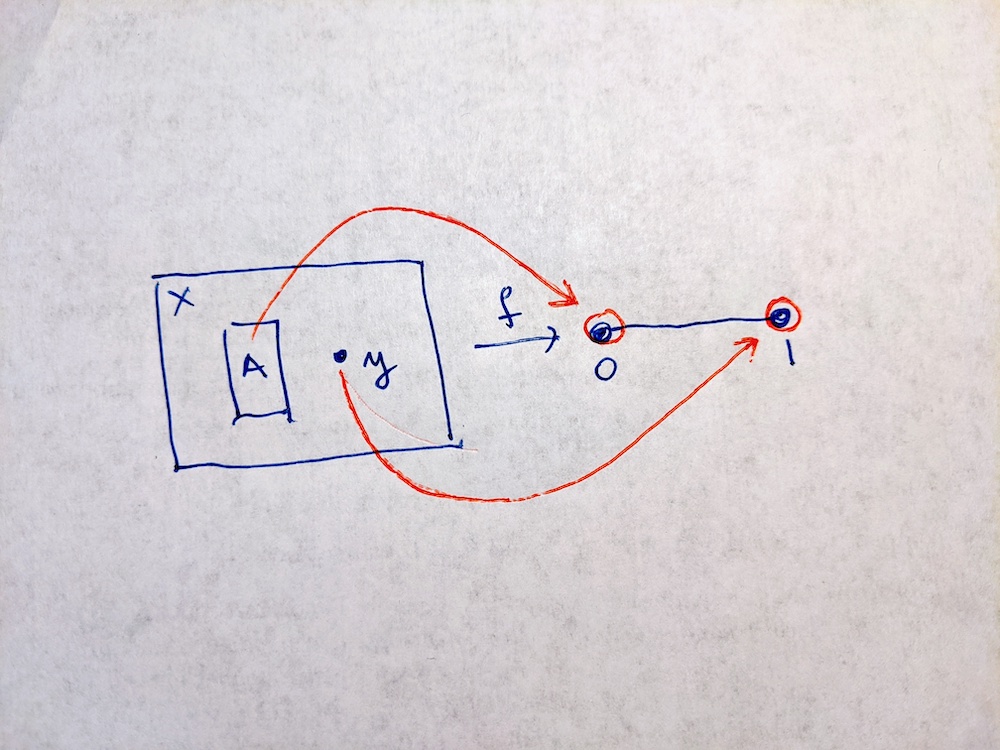 X
A
y
f
0
1